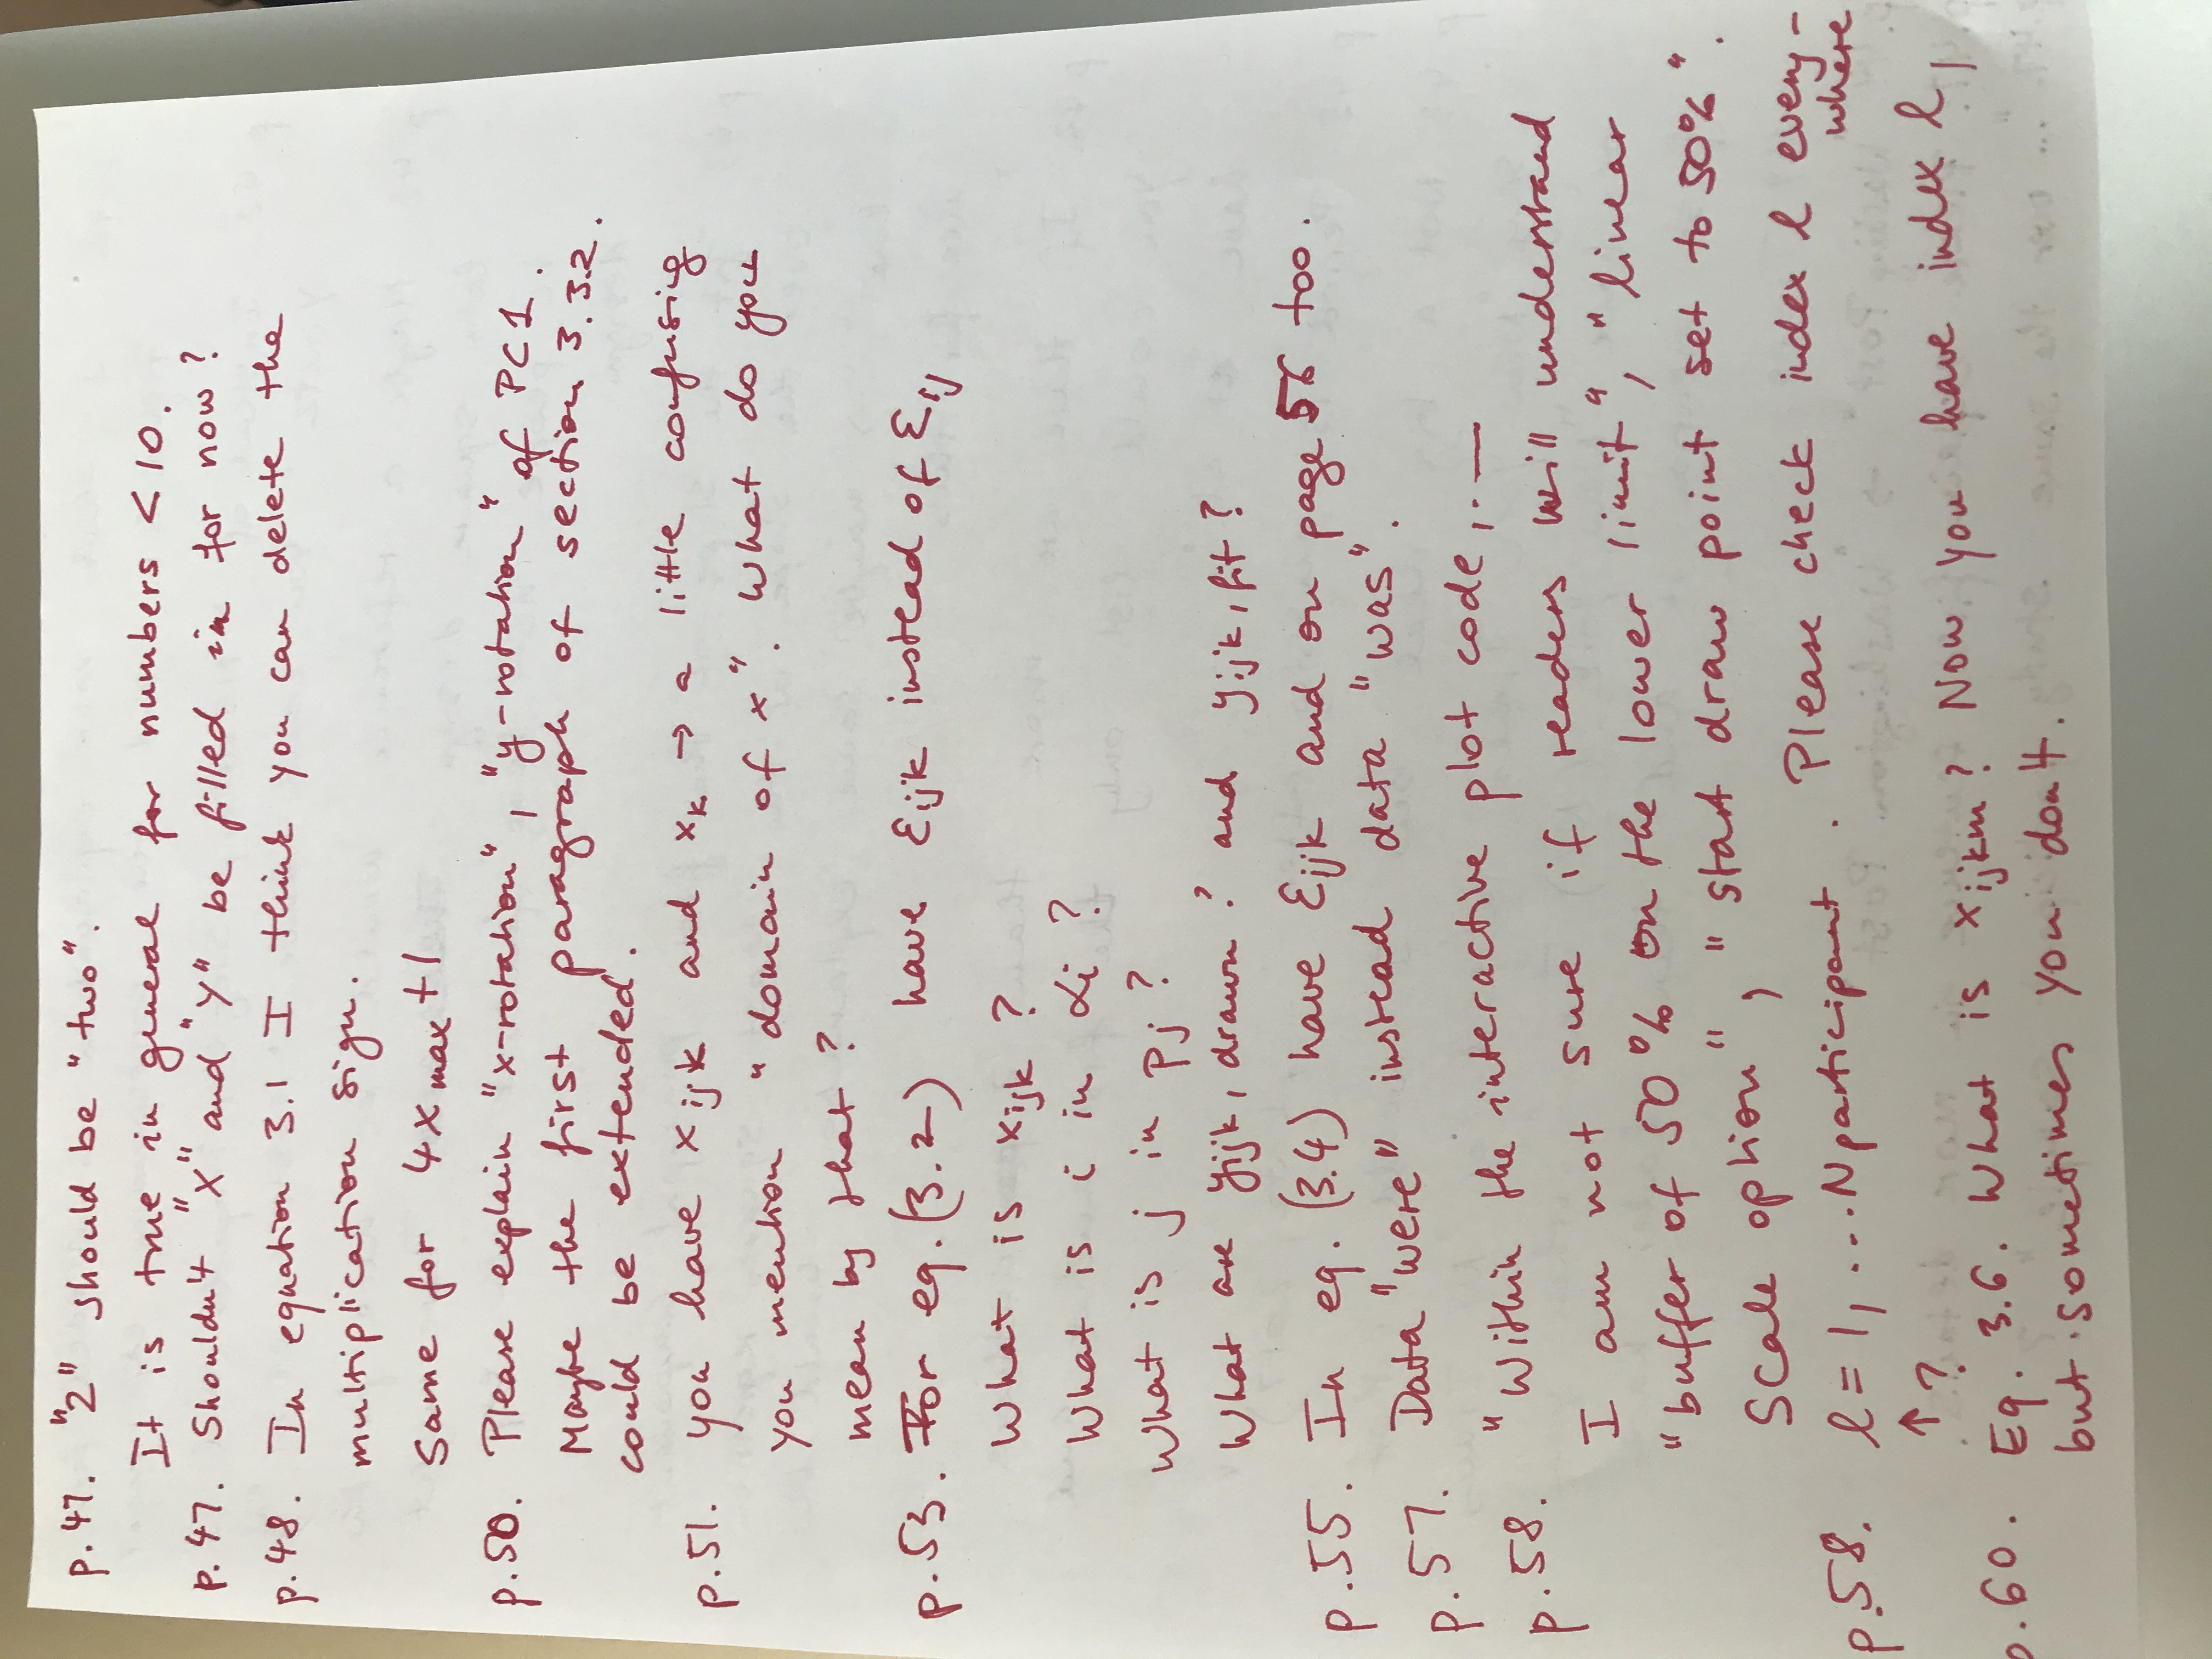 p.47. "2" should be "two".
It is true in general for numbers < 10.
p.47. Shouldn't "X" and "Y" be filled in for now?
p.48. In equation 3.1 I think you can delete the
multiplication sign.
Same for 4x max + 1
p.50. Please explain "x-rotation", "y-rotation" of PC1.
Maybe the first paragraph of section 3.3.2.
could be extended.
p.51. you have x ijk and x k → a little confusing
you mention "domain of x". What do you
mean by that?
p.53. For eq. (3.2) have εijk instead of εij
What is xijk?
What is i in αi?
What is j in pj?
What are yijk, drawn? and yijk, fit?
p.55. In eq. (3.4) have εijk and on page 56 too.
p.57. Data "were" instead data "was".
p.58. "Within the interactive plot code,. —
I am not sure if readers will understand
"buffer of 50% on the lower limit", "linear
scale option", "start draw point set to 50%".
p.58. l = 1, ... Nparticipant. Please check index l every-
where
↑?
p.60. Eq. 3.6. What is xijkm? Now you have index l,
but sometimes you don't.